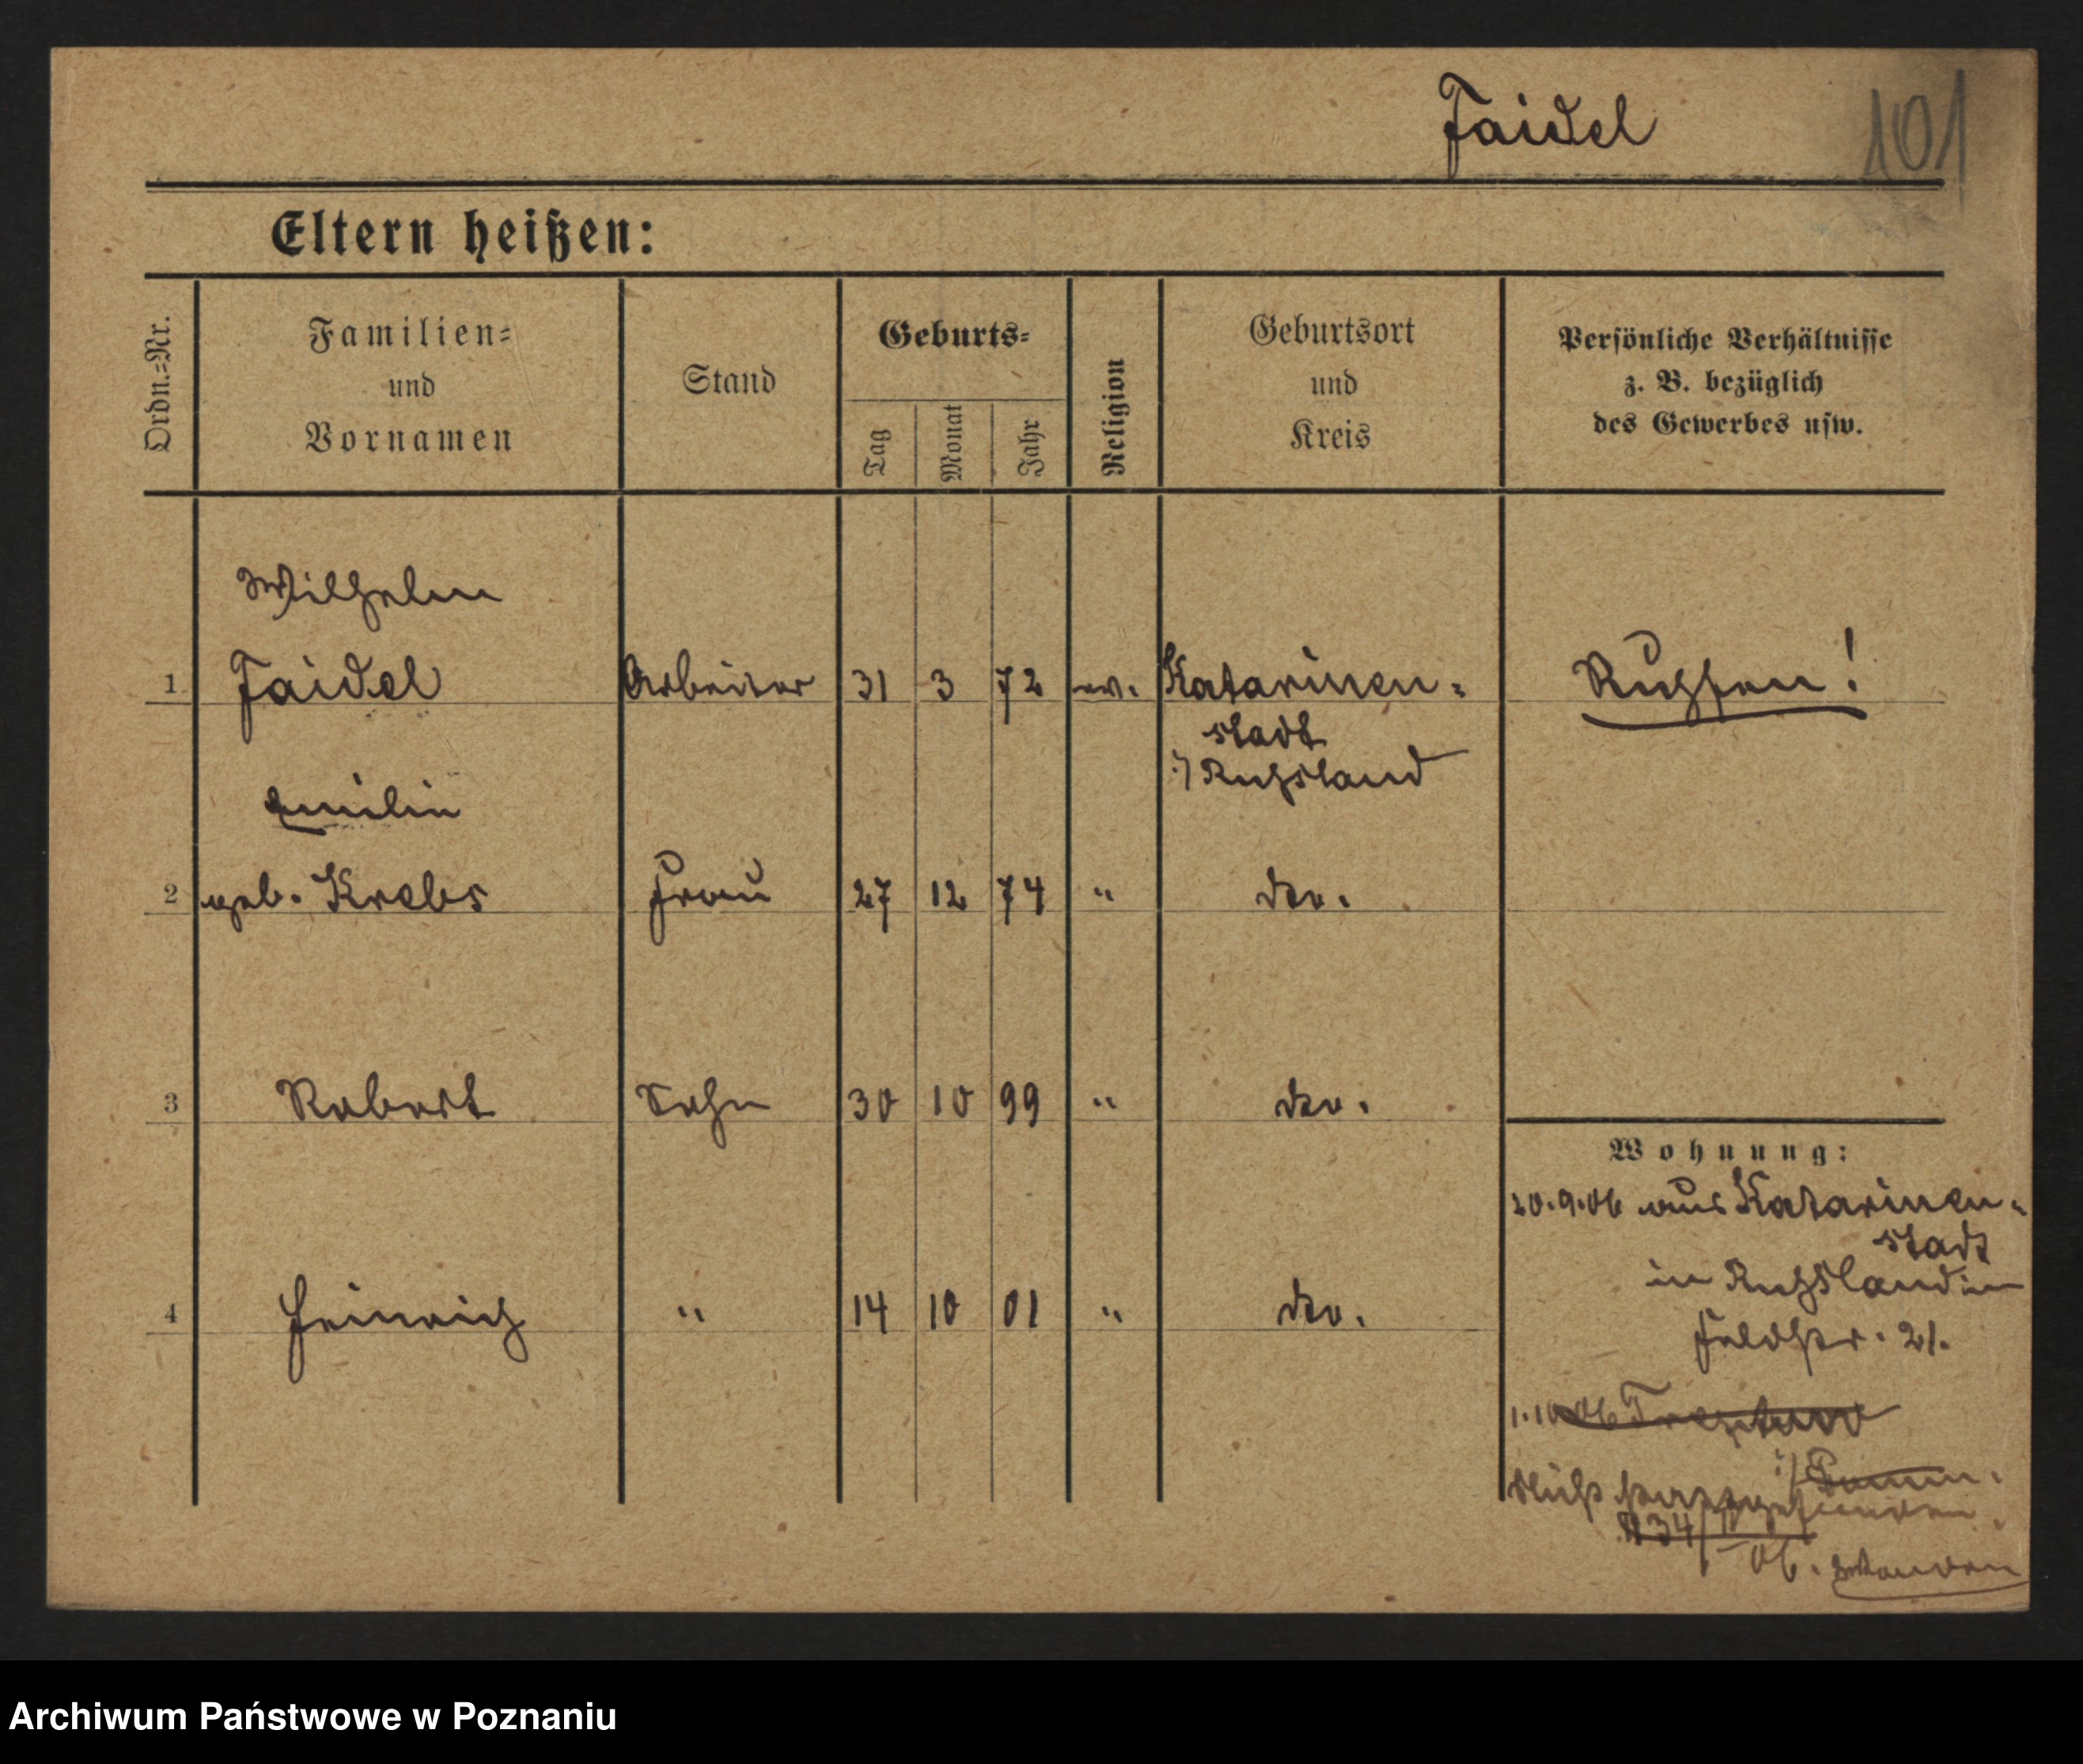 Faidel 101
Eltern heißen:
Ordn.=Nr.
Familien=
und
Vornamen
Stand
Geburts=
Tag
Monat
Jahr
Religion
Geburtsort
und
Kreis
Persönliche Verhältnisse
z. B. bezüglich
des Gewerbes usw.
Wilhelm
1 Faidel Arbeiter 31 3 72 ev. Katarinen- Russen!
stadt
i/ Russland
Emilie
2 geb. Krebs Frau 27 12 74 " do.
3 Robert Sohn 30 10 99 " do.
4 Heinrich " 14 10 01 " do.
Wohnung:
20.9.06 aus Katarinen-
stadt
in Russland in
Feldstr. 21.
06 Treptow
i/
06.
Archiwum Państwowe w Poznaniu